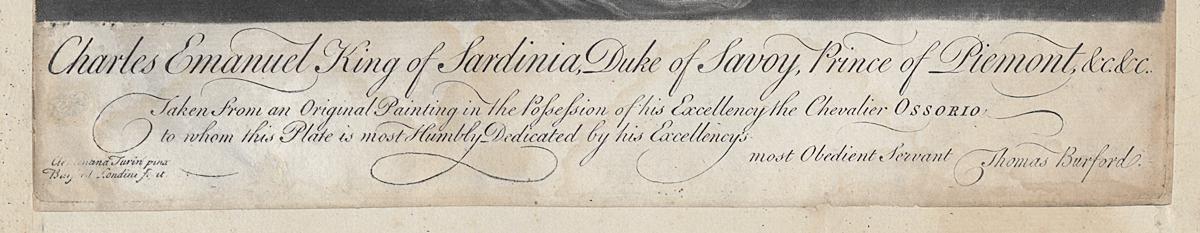 Charles Emanuel King of Sardinia, Duke of Savoy, Prince of Piemont, &c.&c.
Taken from an Original Painting in the Possession of his Excellency the Chevalier OSSORIO,
to whom this Plate is most Humbly Dedicated by his Excellency's
most Obedient Servant Thomas Burford.
Turin pinx
Londini